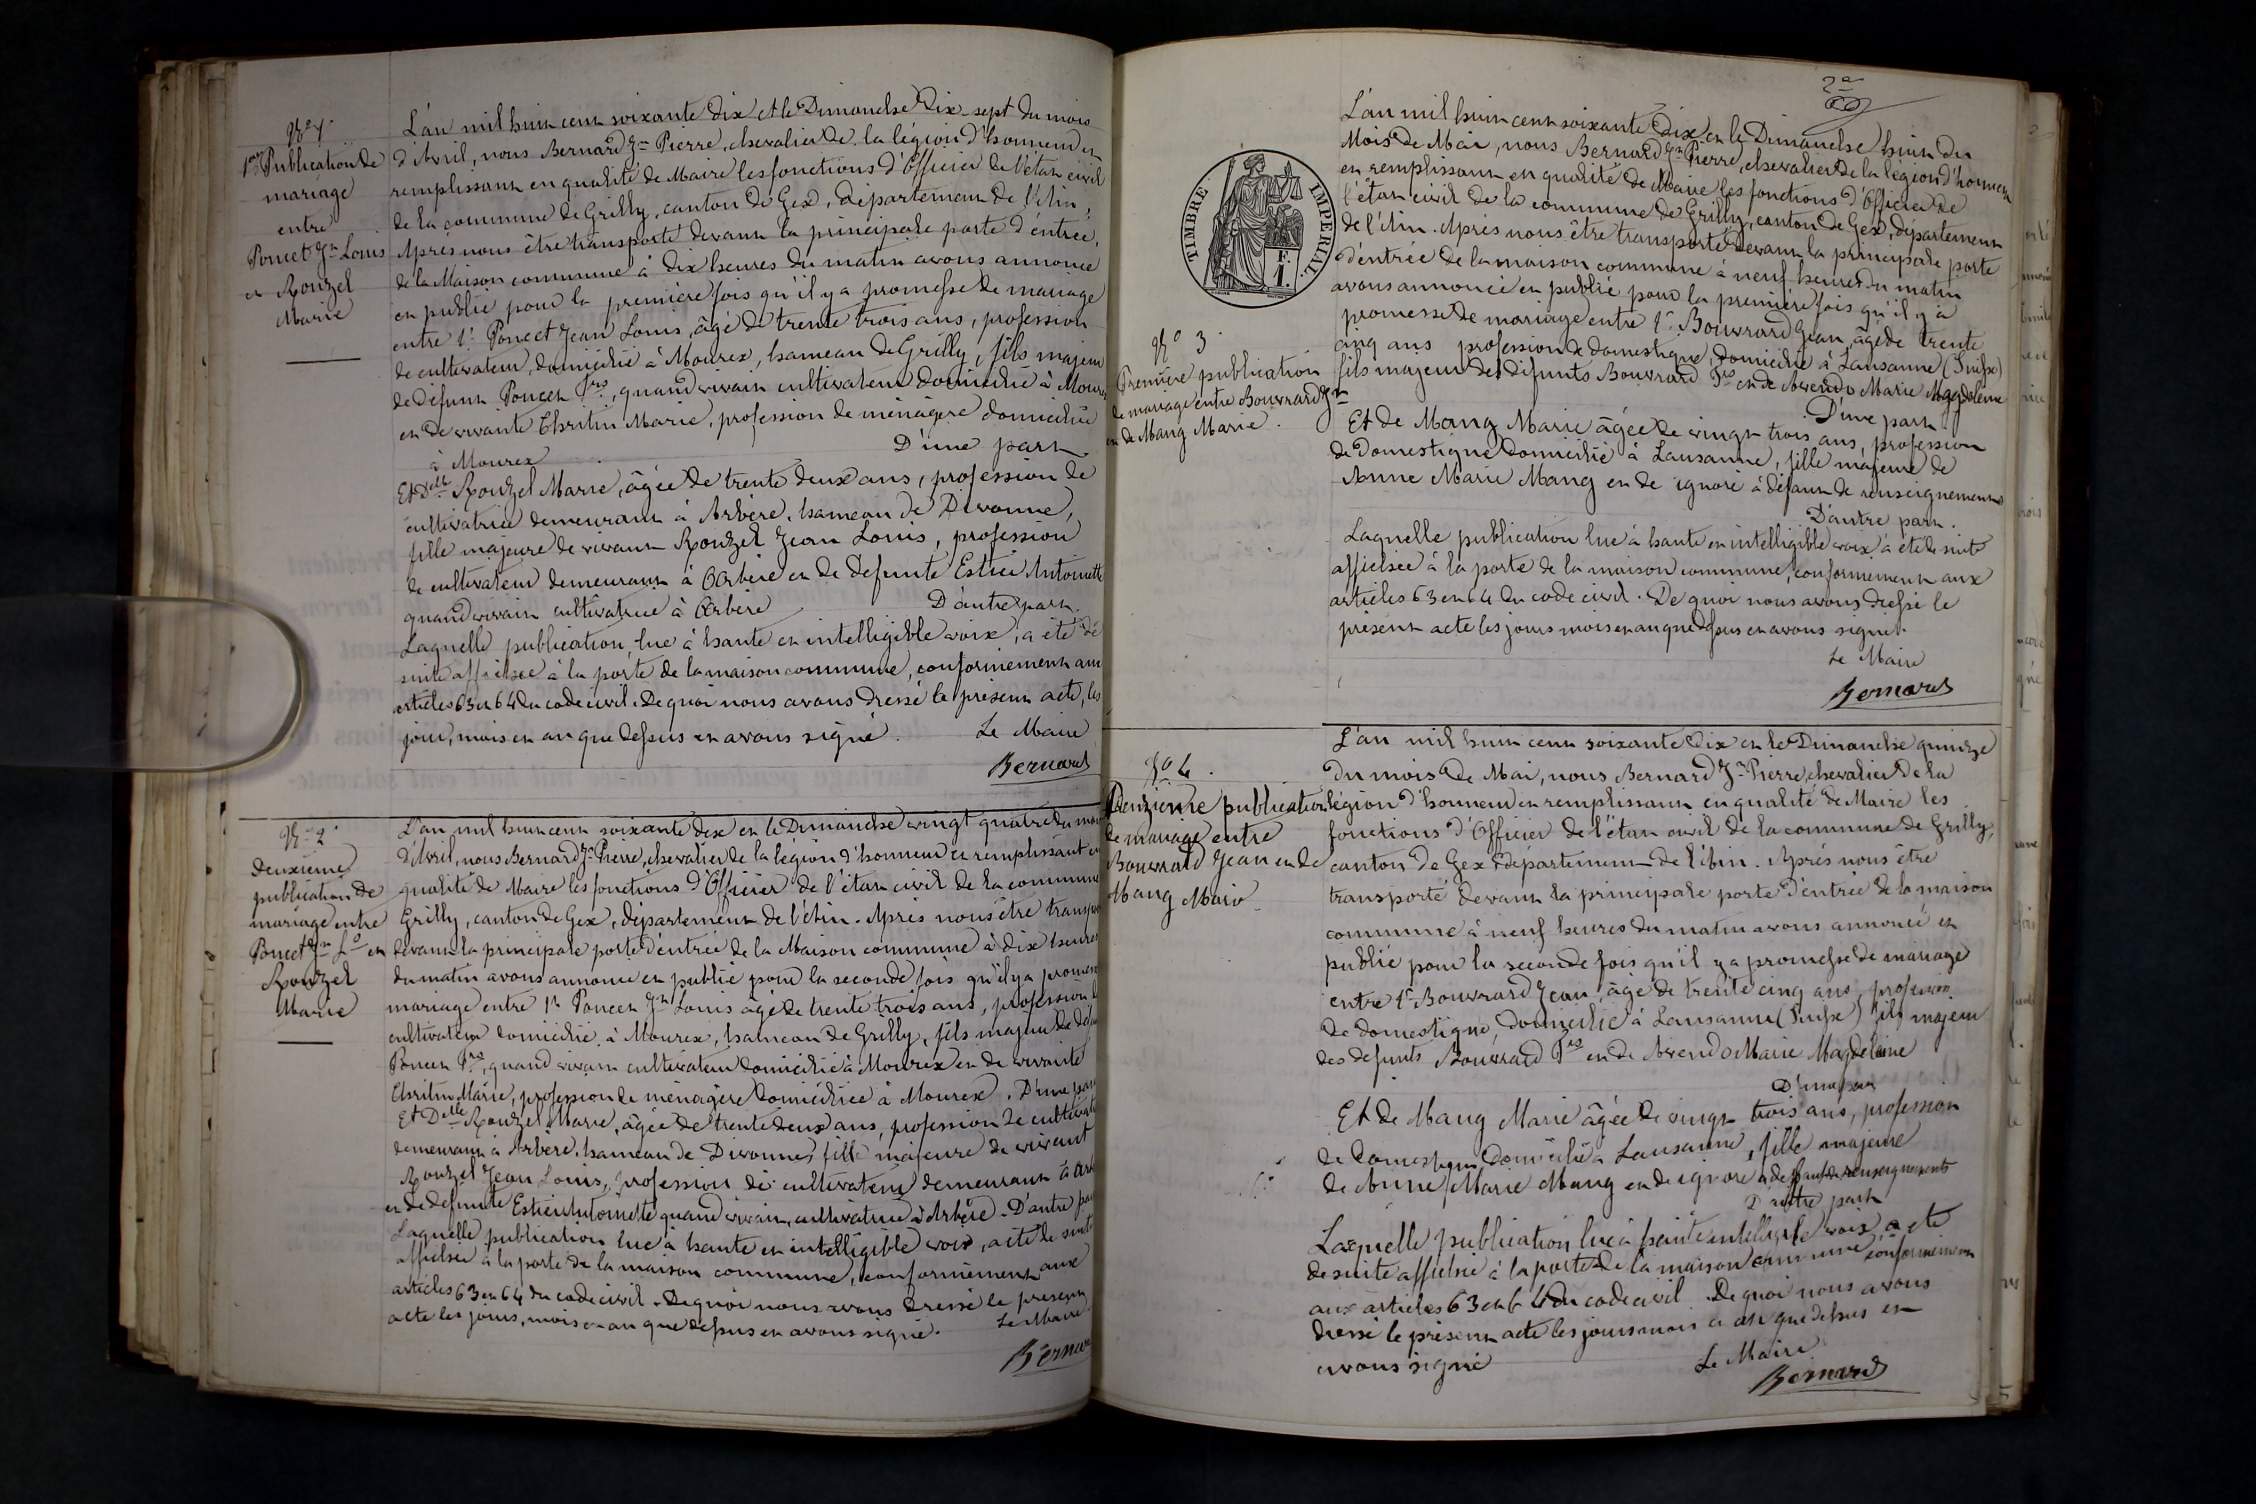 Nº 1.
1ère Publication de
mariage
entre
Poncet Jn Louis
et Rouzel
Marie
L'an mil huit cent soixante dix et le Dimanche dix-sept du mois
d'Avril, nous Bernard Jn Pierre, chevalier de la légion d'honneur et
remplissant en qualité de Maire les fonctions d'Officier de l'état civil
de la commune de Grilly, canton de Gex, département de l'Ain,
Après nous être transporté devant la principale porte d'entrée,
de la Maison commune à dix heures du matin avons annoncé
et publié pour la première fois qu'il y a promesse de mariage
entre 1º Poncet Jean Louis, âgé de trente trois ans, profession
de cultivateur, domicilié à Mourex, hameau de Grilly, fils majeur
de défunt Poncet Fçs, quand vivait cultivateur domicilié à Mourex
et de vivante Chritin Marie, profession de ménagère domiciliée
à Mourex D'une part.
Et Delle Rouzel Marie, âgée de trente deux ans, profession de
cultivatrice demeurant à Arbère, hameau de Divonne,
fille majeure de vivant Rouzel Jean Louis, profession
de cultivateur demeurant à Arbère et de défunte Estier Antoinette
quand vivait cultivatrice à Arbère D'autre part.
Laquelle publication, lue à haute et intelligible voix, a été de
suite affichée à la porte de la maison commune, conformément aux
articles 63 et 64 du code civil. De quoi nous avons dressé le présent acte, les
jour, mois et an que dessus et avons signé. Le Maire
Bernard
Nº 2.
deuxième
publication de
mariage entre
Poncet Jn Ls et
Rouzel
Marie
L'an mil huit cent soixante dix et le Dimanche vingt quatre du mois
d'Avril, nous Bernard Jn Pierre, chevalier de la légion d'honneur et remplissant en
qualité de Maire les fonctions d'Officier de l'état civil de la commune
Grilly, canton de Gex, département de l'Ain. Après nous être transporté
devant la principale porte d'entrée de la Maison commune à dix heures
du matin avons annoncé et publié pour la seconde fois qu'il y a promesse
mariage entre 1º Poncet Jn Louis âgé de trente trois ans, profession
cultivateur domicilié à Mourex, hameau de Grilly, fils majeur de défunt
Poncet Fçs, quand vivait cultivateur domicilié à Mourex et de vivante
Chritin Marie, profession de ménagère domiciliée à Mourex. D'une part
Et Delle Rouzel Marie, âgée de trente deux ans, profession de cultivatrice
demeurant à Arbère, hameau de Divonne, fille majeure de vivant
Rouzel Jean Louis, profession de cultivateur demeurant à Arbère
et de défunte Estier Antoinette quand vivait cultivatrice à Arbère. D'autre part
Laquelle publication lue à haute et intelligible voix, a été de suite
affichée à la porte de la maison commune, conformément aux
articles 63 et 64 du code civil. De quoi nous avons dressé le présent
acte les jours, mois et an que dessus et avons signé. Le Maire
Bernard
2e
TIMBRE IMPERIAL.
1 F.
Nº 3
Première publication
de mariage entre Bouvrard Jn
et de Mang Marie.
L'an mil huit cent soixante dix et le Dimanche huit du
Mois de Mai, nous Bernard Jn Pierre, chevalier de la légion d'honneur
et remplissant en qualité de Maire les fonctions d'Officier de
l'état civil de la commune de Grilly, canton de Gex, département
de l'Ain. Après nous être transporté devant la principale porte
d'entrée de la maison commune à neuf heures du matin
avons annoncé et publié pour la première fois qu'il y a
promesse de mariage entre 1º Bouvrard Jean, âgé de trente
cinq ans profession de domestique, domicilié à Lausanne (Suisse)
fils majeur des défunts Bouvrard Fçs et de Avendo Marie Magdeleine
D'une part
Et de Mang Marie âgée de vingt trois ans, profession
de domestique domicilié à Lausanne, fille majeure de
Anne Marie Mang et de ignoré à défaut de renseignements
D'autre part.
Laquelle publication lue à haute et intelligible voix a été de suite
affichée à la porte de la maison commune, conformément aux
articles 63 et 64 du code civil. De quoi nous avons dressé le
présent acte les jours mois et an que dessus et avons signé.
Le Maire
Bernard
Nº 4.
Deuxième publication
de mariage entre
Bouvrard Jean et de
Mang Marie
L'an mil huit cent soixante dix et le Dimanche quinze
du mois de Mai, nous Bernard Jn Pierre, chevalier de la
légion d'honneur et remplissant en qualité de Maire les
fonctions d'Officier de l'état civil de la commune de Grilly,
canton de Gex département de l'Ain. Après nous être
transporté devant la principale porte d'entrée de la maison
commune à neuf heures du matin avons annoncé et
publié pour la seconde fois qu'il y a promesse de mariage
entre 1º Bouvrard Jean, âgé de trente cinq ans, profession
de domestique, domicilié à Lausanne (Suisse) fils majeur
des défunts Bouvrard Fçs et de Avendo Marie Magdeleine
D'une part
Et de Mang Marie âgée de vingt trois ans, profession
de domestique domicilié à Lausanne, fille majeure
de Anne Marie Mang et de ignoré à défaut de renseignements
D'autre part
Laquelle publication lue à haute et intelligible voix, a été
de suite affichée à la porte de la maison commune conformément
aux articles 63 et 64 du code civil. De quoi nous avons
dressé le présent acte les jours mois et an que dessus et
avons signé Le Maire
Bernard